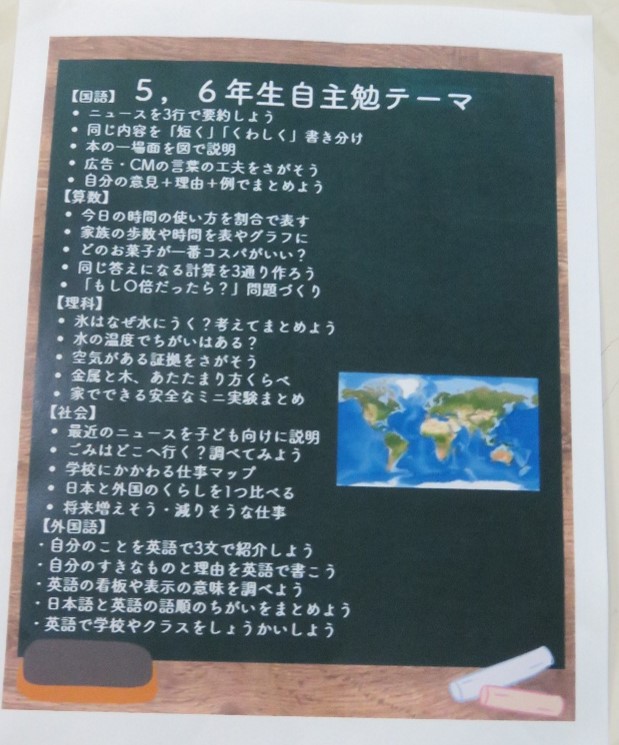 5，6年生自主勉テーマ
【国語】
• ニュースを3行で要約しよう
• 同じ内容を「短く」「くわしく」書き分け
• 本の一場面を図で説明
• 広告・CMの言葉の工夫をさがそう
• 自分の意見＋理由＋例でまとめよう
【算数】
• 今日の時間の使い方を割合で表す
• 家族の歩数や時間を表やグラフに
• どのお菓子が一番コスパがいい？
• 同じ答えになる計算を3通り作ろう
• 「もし〇倍だったら？」問題づくり
【理科】
• 氷はなぜ水にうく？考えてまとめよう
• 水の温度でちがいはある？
• 空気がある証拠をさがそう
• 金属と木、あたたまり方くらべ
• 家でできる安全なミニ実験まとめ
【社会】
• 最近のニュースを子ども向けに説明
• ごみはどこへ行く？調べてみよう
• 学校にかかわる仕事マップ
• 日本と外国のくらしを1つ比べる
• 将来増えそう・減りそうな仕事
【外国語】
・自分のことを英語で3文で紹介しよう
・自分のすきなものと理由を英語で書こう
・英語の看板や表示の意味を調べよう
・日本語と英語の語順のちがいをまとめよう
・英語で学校やクラスをしょうかいしよう